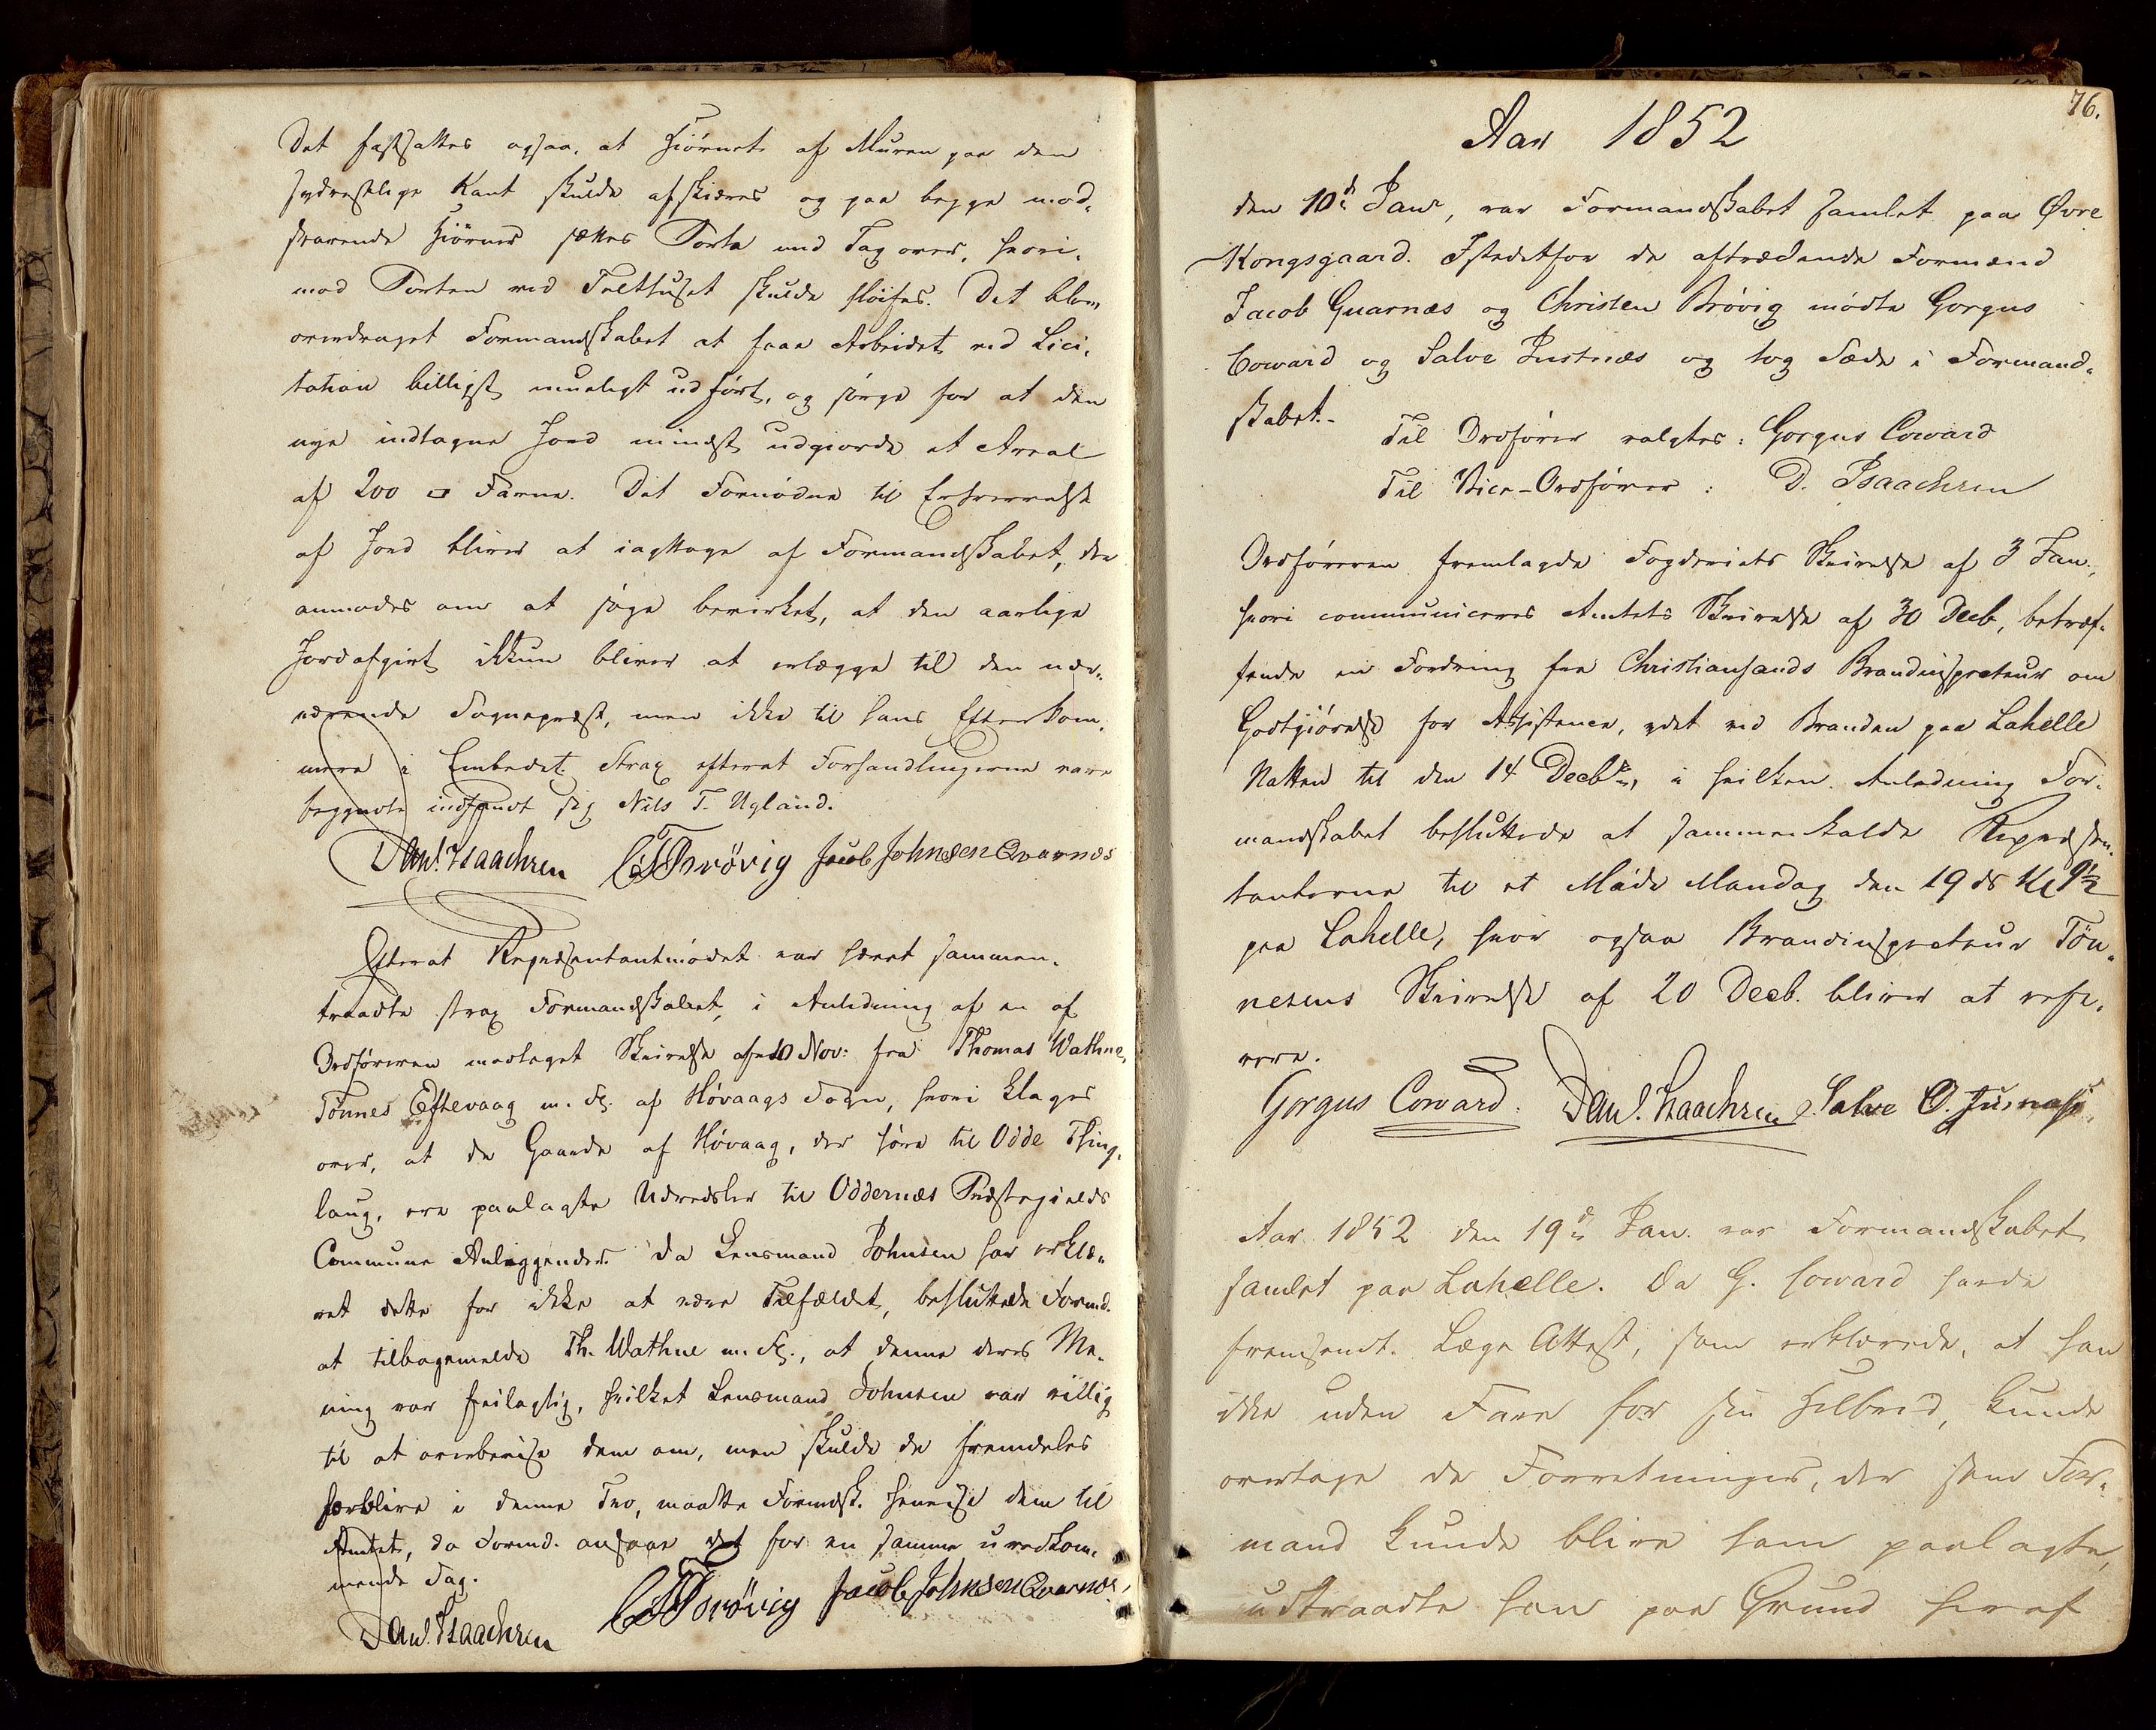 Det fastsattes ogsaa, at Hiørnet af Muren paa den
sydvestlige Kant skulde afskiæres og paa begge mod-
svarende Hiørner sættes Porte med Tag over, hvori-
mod Porten ved Telthuset skulde sløifes. Det blev
overdraget Formandskabet at faae Arbeidet ved Lici-
tation billigst mueligt udført, og sørge for at den
nye indtagne Jord mindst udgiorde et Areal
af 200 □ Favne. Det Fornødne til Erhvervelse
af Jord bliver at iagttage af Formandskabet, der
anmodes om at søge bevirket, at den aarlige
Jordafgivt ikkun bliver at erlægge til den nær-
værende Sognepræst, men ikke til hans Efterkom-
mere i Embedet. Strax efterat Forhandlingerne vare
begyndte indfandt sig Nils T. Ugland.
Danl. Isaachsen CTBrøvig Jacob Johnsen Qvarnæs
Efterat Repræsentantmødet var hævet sammen-
traadte strax Formandskabet, i Anledning af en af
Ordføreren modtaget Skrivelse af 10 Nov: fra Thomas Wathne,
Tønnes Eftevaag m. Fl. af Høvaags Sogn, hvori klages
over, at de Gaarde af Høvaag, der høre til Odde Thing-
laug, ere paalagte Udredsler til Oddernæs Præstegields
Commune Anliggender. Da Lensmand Johnsen har erklæ-
ret dette for ikke at være Tilfældet, besluttede Formd.
at tilbagemelde Th. Wathne m. Fl., at denne deres Me-
ning var feilagtig, hvilket Lensmand Johnsen var villig
til at overbevise dem om, men skulde de fremdeles
forblive i denne Tro, maatte Formdsk. henvise dem til
Amtet, da Formd. ansaae det for en samme uvedkom-
mende Sag.
Danl. Isaachsen CTBrøvig Jacob Johnsen Qvarnæs,
76.
Aar 1852
den 10de Janr, var Formandskabet samlet paa Øvre
Kongsgaard. Istedetfor de aftrædende Formænd
Jacob Quarnæs og Christen Brøvig mødte Gorgus
Coward og Salve Justnæs og tog Sæde i Formand-
skabet.-
Til Ordfører valgtes: Gorgus Coward
Til Vice-Ordfører: D. Isaachsen
Ordføreren fremlagde Fogderiets Skrivelse af 3 Jan.,
hvori communiceres Amtets Skrivelse af 30 Decb, betræf-
fende en Fordring fra Christiansands Brandinspecteur om
Godtgiørelse for Assistence, ydet ved Branden paa Lahelle
Natten til den 14 Decbr, i hvilken Anledning For-
mandskabet besluttede at sammenkalde Repræsen-
tanterne til et Møde Mandag den 19 ds Kl 9½
paa Lahelle, hvor ogsaa Brandinspecteur Tøn-
nesens Skrivelse af 20 Decb. bliver at refe-
rere.
Gorgus Coward. Danl. Isaachsen Salve O. Jusnæss
Aar 1852 den 19de Jan. var Formandskabet
samlet paa Lahelle. Da G. Coward havde
fremsendt Læge Attest, som erklærede, at han
ikke uden Fare for sin Helbred, kunde
overtage de Forretninger, der som For-
mand kunde blive ham paalagte,
udtraadte han paa Grund heraf